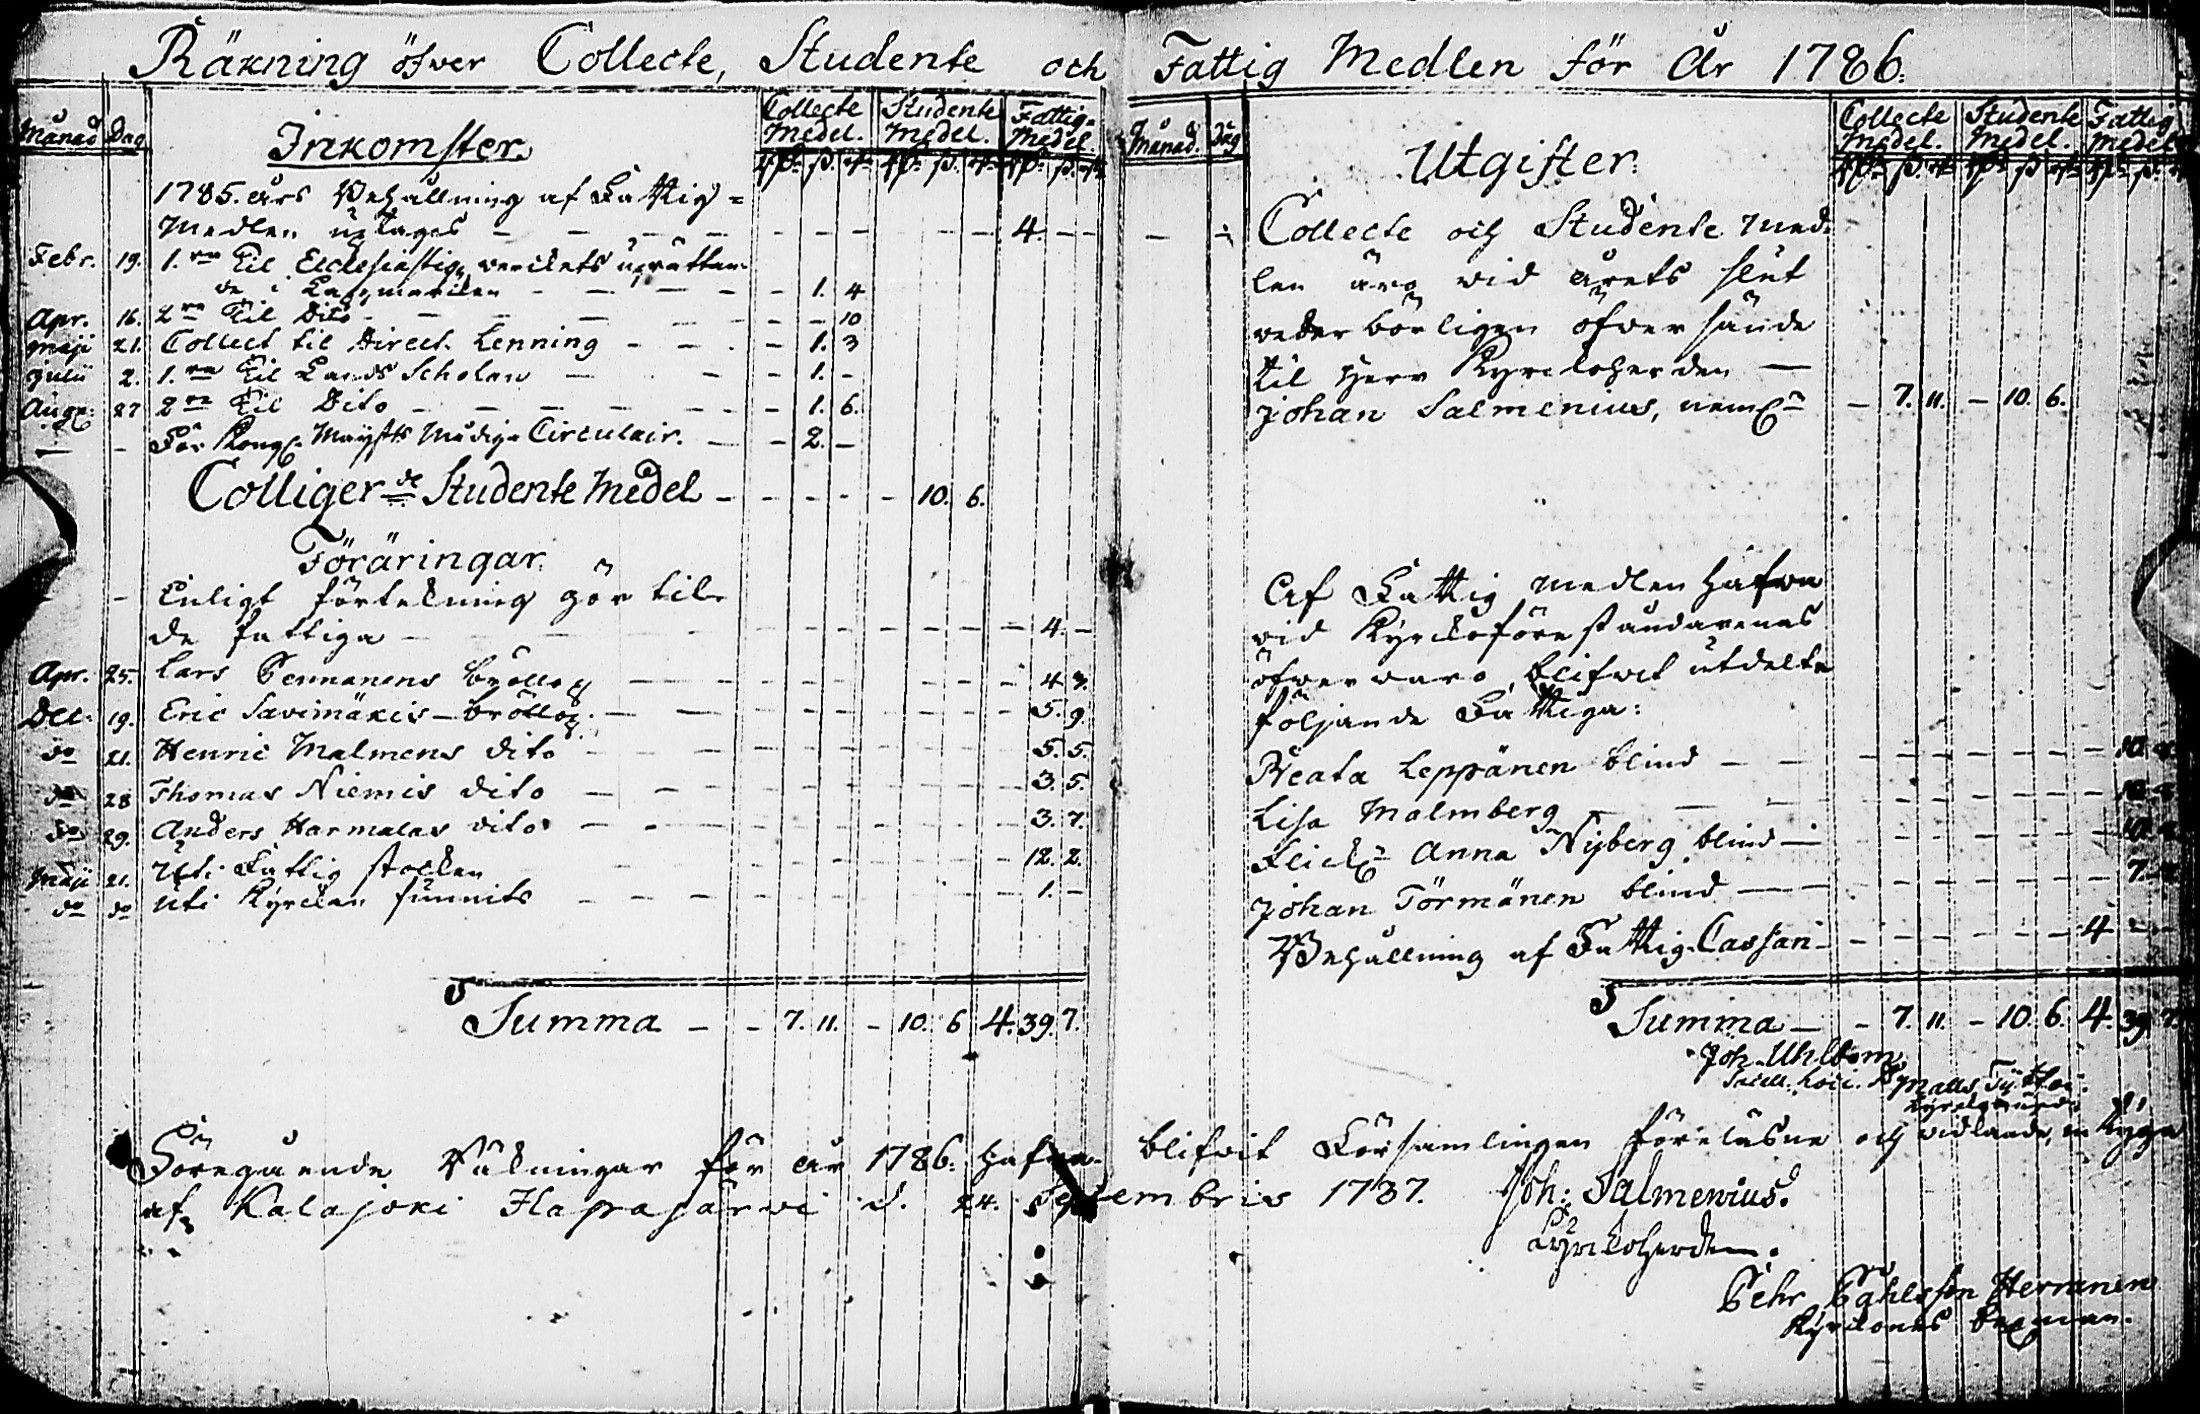 Räkning öfver Collecte, Studente och Fattig Medlen för År 1786.
Månad Dag Inkomster. Collecte Medel. Studente Medel. Fattig-Medel.
1785. års Behållning af Fattig=
Medlen uptages - - - 4. - -
Febr. 19. 1.ra Til Ecclesiastiq. verckets uprättan-
de i Lappmarcken - - - 1. 4
Apr. 16. 2ra Til Dito - - - 10
Maji 21. Collect til Direct. Lenning - - - 1. 3
Julii 2. 1.ra Til Lands Scholan - - 1. -
Aug. 27 2ra Til Dito - - - 1. 6.
- - För Kongl. Maysts Nådiga Circulair. - - 2. -
Colliger.de Studente Medel - - - 10. 6.
Föräringar.
- Enligt förtekning för til
de fattiga - - - 4. -
Apr. 25. Lars Pennanens bröllop - - - 4 3.
Dec. 19. Eric Savimäkis - bröllop. - - - 5. 9.
do 21. Henric Malmens dito - - - 5. 5.
do 28 Thomas Niemis dito - - - 3. 5.
do 29. Anders Harmalas dito - - - 3. 7.
Maji 21. Uti Fattig stocken - - - 12. 2.
do do Uti Kyrckan funnits - - - 1. -
Summa - - 7. 11. - 10. 6 4. 39. 7.
Månad. Dag Utgifter. Collecte Medel. Studente Medel. Fattig Medel
Collecte och Studente Med-
len äro vid årets slut
vederbörligen öfversände
til Herr Kyrckoherden -
Johan Salmenius, neml. - 7. 11. - 10. 6.
Af Fattig medlen hafva
vid Kyrckoföreståndarenas
öfvervaro, blifvit utdelte
följande Fattiga:
Beata Leppänen blind - - - 10.
Lisa Malmberg - - - 10.
Flick. Anna Nyberg blind - - - 10.
Johan Törmänen blind - - - 7.
Behållning af Fattig-Cassan - - - 4 - -
Summa - - 7. 11. - 10. 6. 4. 39. 7.
Joh. Uhlbom
Sacell. loci. Matts
Föregående Räkningar för år 1786. hafva blifvit Församlingen föreläsne och vidkände,
af Kalajoki Hapajärvi d. 24. Septembris 1787. Joh: Salmenius.
Kyrckoherden.
Pehr Påhlsson Herranen
Kyrckones